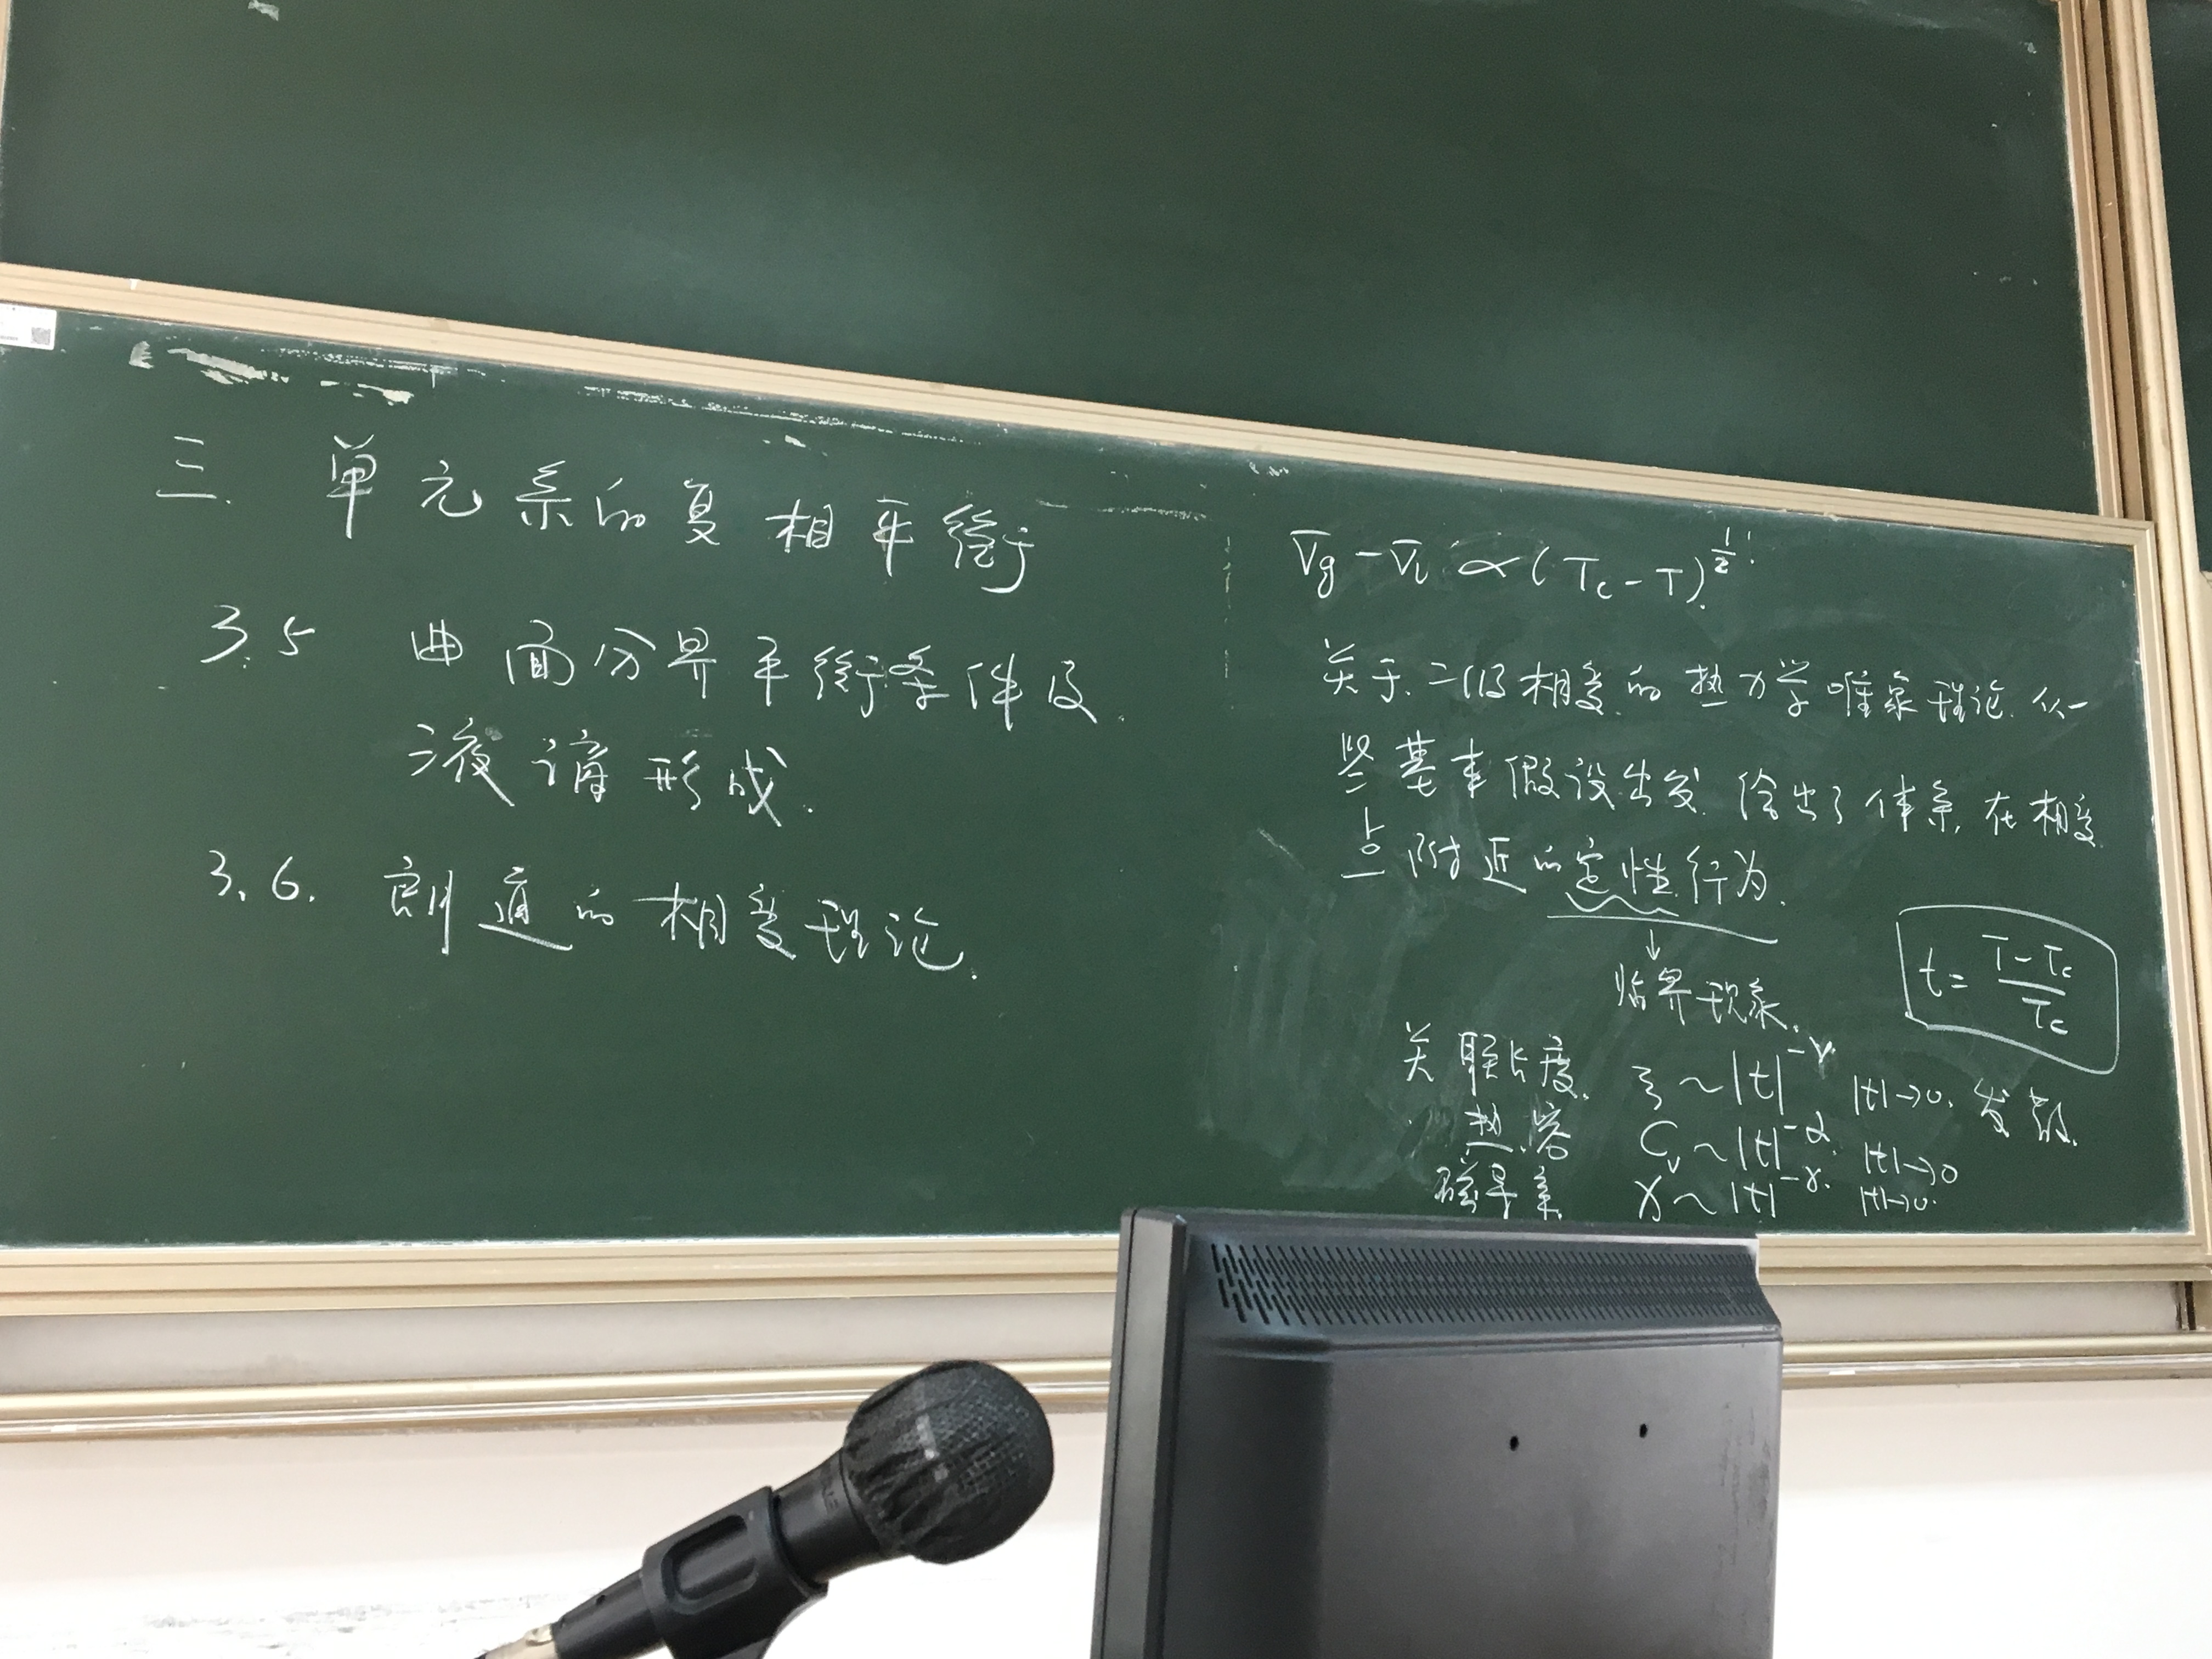 三. 单元系的复相平衡
3.5 曲面分界平衡条件及
液滴形成.
3.6. 朗道的相变理论.
V̄g - V̄l ∝ (Tc - T)^{1/2}.
关于二级相变的热力学唯象理论. 从一
些基本假设出发 给出了体系在相变
点附近的定性行为.
↓
临界现象.
t = (T - Tc)/Tc
关联长度. ξ ~ |t|^{-ν} |t|→0. 发散.
热容 Cv ~ |t|^{-α}. |t|→0
磁导系 χ ~ |t|^{-γ}. |t|→0.